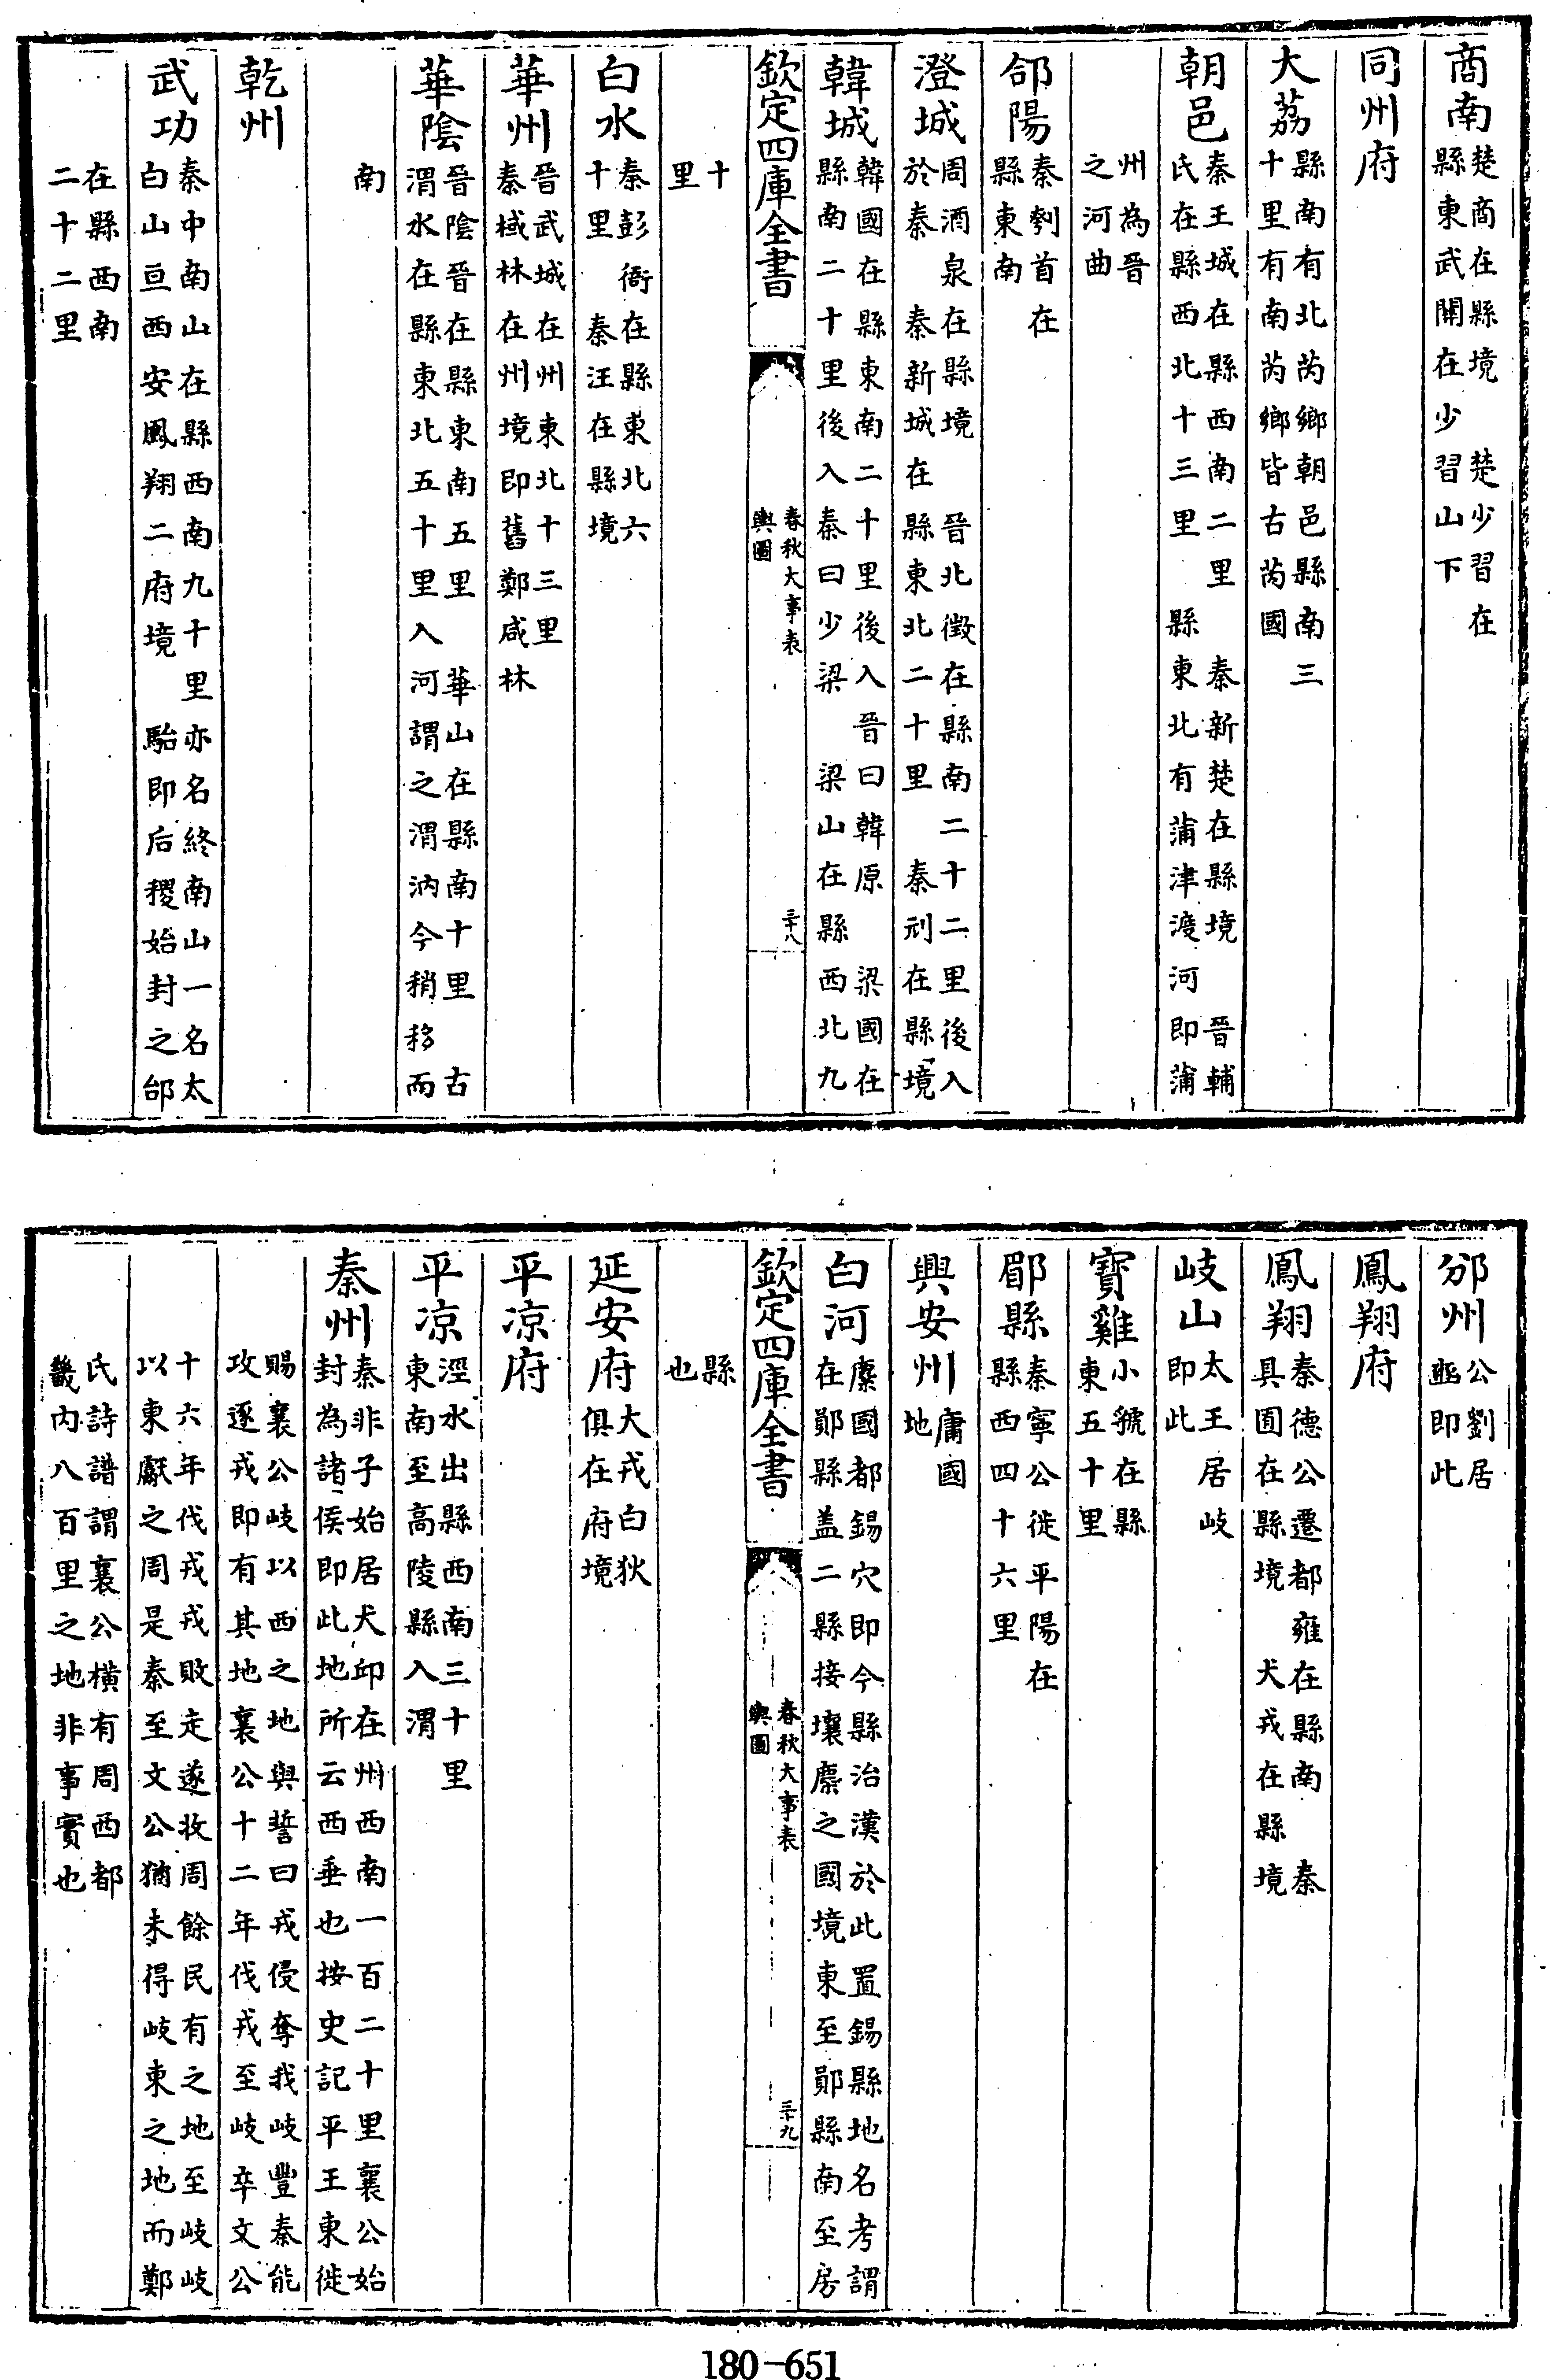 商南楚商在縣境 楚少習在縣東武關在少習山下
同州府
大荔縣南有北芮鄉朝邑縣南三十里有南芮鄉皆古芮國
朝邑秦王城在縣西南二里 秦新楚在縣境 晉輔氏在縣西北十三里 縣東北有蒲津渡河即蒲
州為晉之河曲
郃陽秦刳首在縣東南
澄城周酒泉在縣境 晉北徵在縣南二十二里後入於秦 秦新城在縣東北二十里 秦刓在縣境
韓城韓國在縣東南二十里後入晉曰韓原 梁國在縣南二十里後入秦曰少梁 梁山在縣西北九
欽定四庫全書 春秋大事表輿圖 三十八
十里
白水秦彭衙在縣東北六十里 秦汪在縣境
華州晉武城在州東北十三里秦棫林在州境即舊鄭咸林
華陰晉陰晉在縣東南五里 華山在縣南十里 古渭水在縣東北五十里入河謂之渭汭今稍移而
南
乾州
武功秦中南山在縣西南九十里亦名終南山一名太白山亘西安鳳翔二府境 駘即后稷始封之邰
在縣西南二十二里
邠州公劉居豳即此
鳳翔府
鳳翔秦德公遷都雍在縣南 秦具囿在縣境 犬戎在縣境
岐山太王居岐即此
寶雞小虢在縣東五十里
郿縣秦寧公徙平陽在縣西四十六里
興安州庸國地
白河麇國都錫穴即今縣治漢於此置錫縣地名考謂在鄖縣盖二縣接壤麇之國境東至鄖縣南至房
欽定四庫全書 春秋大事表輿圖 三十九
縣也
延安府大戎白狄俱在府境
平凉府
平凉涇水出縣西南三十里東南至高陵縣入渭
秦州秦非子始居犬邱在州西南一百二十里襄公始封為諸侯即此地所云西垂也按史記平王東徙
賜襄公岐以西之地與誓曰戎侵奪我岐豐秦能攻逐戎即有其地襄公十二年伐戎至岐卒文公
十六年伐戎戎敗走遂收周餘民有之地至岐岐以東獻之周是秦至文公猶未得岐東之地而鄭
氏詩譜謂襄公橫有周西都畿內八百里之地非事實也
180-651